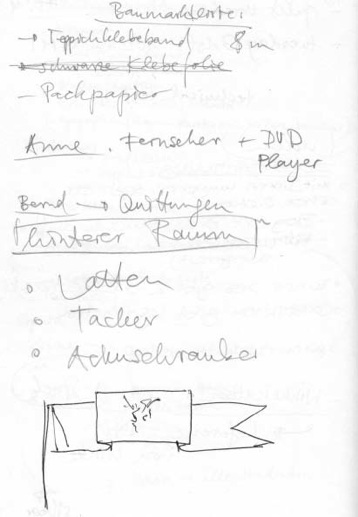 Baumarktliste:
→ Teppichklebeband 8m
→ schwarze Klebefolie
– Packpapier
Anne. Fernseher + DVD
Player
Bernd → Quittungen
hinterer Raum
• Latten
• Tacker
• Ackuschrauber